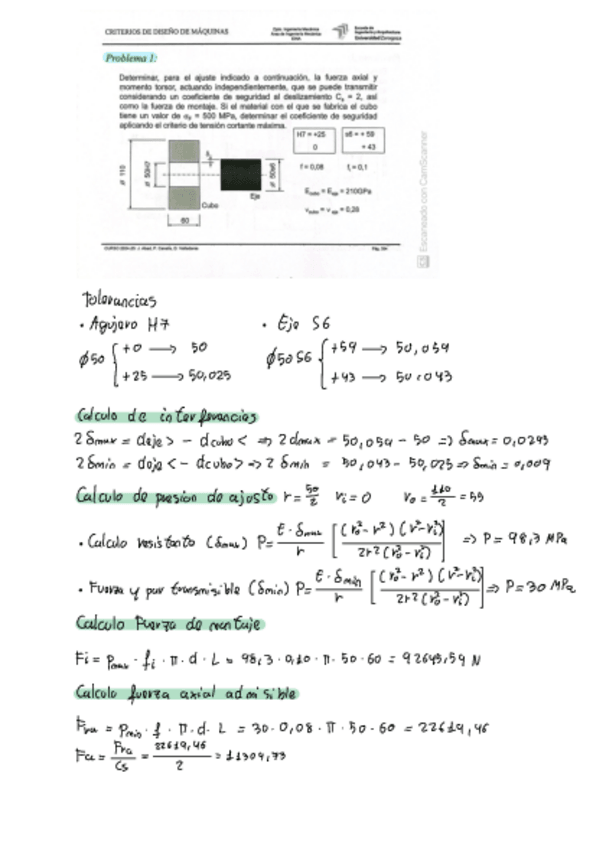 CRITERIOS DE DISEÑO DE MÁQUINAS
Dpto. Ingeniería Mecánica
Área de Ingeniería Mecánica
Escuela de
Ingeniería y Arquitectura
Universidad Zaragoza
Problema 1:
Determinar, para el ajuste indicado a continuación, la fuerza axial y
momento torsor, actuando independientemente, que se puede transmitir
considerando un coeficiente de seguridad al deslizamiento Cs = 2, así
como la fuerza de montaje. Si el material con el que se fabrica el cubo
tiene un valor de = 500 MPa, determinar el coeficiente de seguridad
aplicando el criterio de tensión cortante máxima.
H7 = +25
0
s6 = + 59
+ 43
f = 0,08 fi = 0,1
Ecubo = Eeje = 210GPa
νcubo = ν eje = 0,28
ø 110
ø 50H7
ø 50s6
Eje
Cubo
60
Escaneado con CamScanner
CS
Tolerancias
• Agujero H7 • Eje S6
ϕ50 { +0 → 50
+25 → 50,025
ϕ50 S6 { +59 → 50,059
+43 → 50,043
Calculo de interferencias
2δmax = deje> - dcubo< => 2dmax = 50,059 - 50 => δmax = 0,0295
2δmin = deje< - dcubo> => 2 δmin = 50,043 - 50,025 => δmin = 0,009
Calculo de presion de ajuste r = 50/2 ri = 0 ro = 110/2 = 55
• Calculo resistente (δmax) P = E·δmax/r [(ro²-r²)(r²-ri²)/2r²(ro²-ri²)] => P = 98,3 MPa
• Fuerza y par transmisible (δmin) P = E·δmin/r [(ro²-r²)(r²-ri²)/2r²(ro²-ri²)] => P = 30 MPa
Calculo Fuerza de montaje
Fi = Pmax · fi · π · d · L = 98,3 · 0,10 · π · 50 · 60 = 92645,59 N
Calculo fuerza axial admisible
Fra = Pmin · f · π · d · L = 30 · 0,08 · π · 50 · 60 = 22619,46
Fa = Fra/Cs = 22619,46/2 = 11309,73